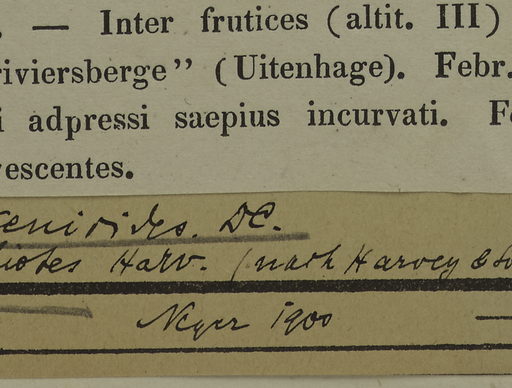 . — Inter frutices (altit. III)
riviersberge” (Uitenhage). Febr.
i adpressi saepius incurvati. Fo
vescentes.
DC.
Harv. (nach Harvey &
Neger 1900